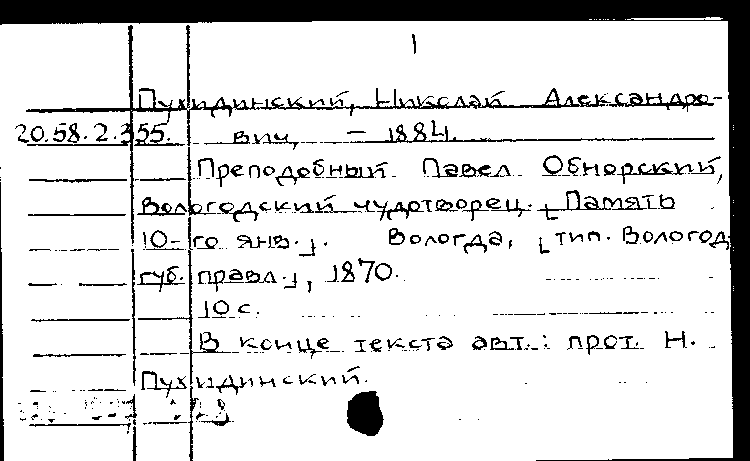 1
Пухидинский, Николай Александро-
20.58.2.355. вич, – 1884.
Преподобный Павел Обнорский,
Вологодский чудотворец. [Память
10-го янв.]. Вологда, [тип. Вологод.
губ. правл.], 1870.
10 с.
В конце текста авт.: прот. Н.
Пухидинский.